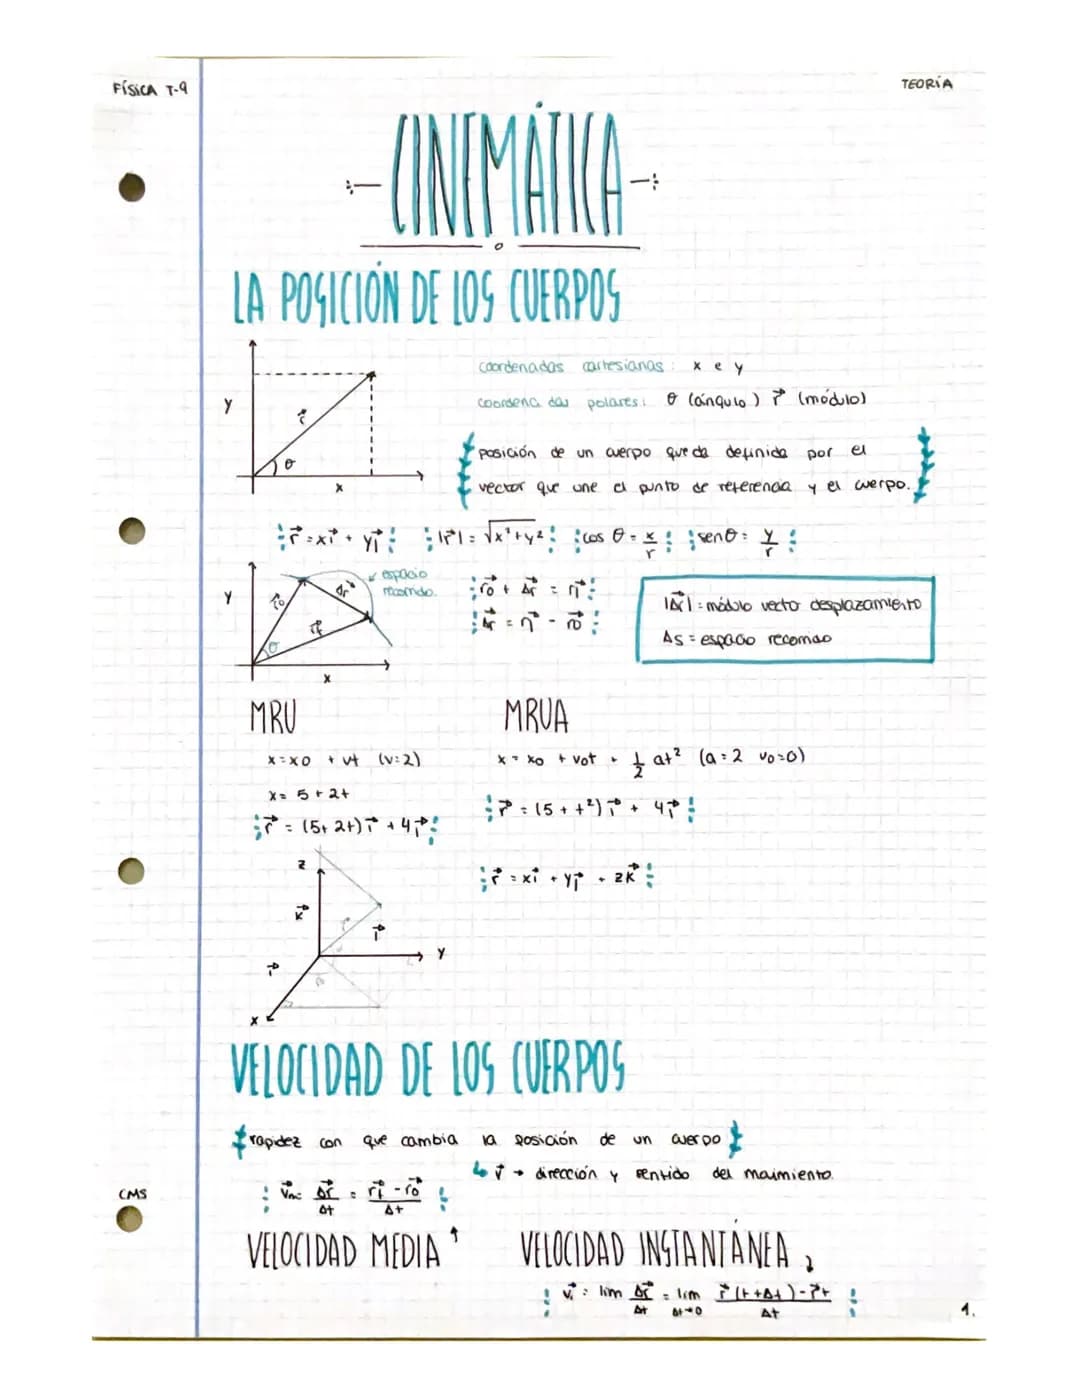 FÍSICA T-9
TEORÍA
CINEMÁTICA
LA POSICIÓN DE LOS CUERPOS
coordenadas cartesianas: x e y
coordenadas polares: θ (ángulo) r⃗ (módulo)
y
r⃗
θ
x
posición de un cuerpo queda definida por el
vector que une el punto de referencia y el cuerpo.
r⃗ = xi⃗ + yj⃗
|r⃗| = √x²+y²
cos θ = x/r
senθ = y/r
y
r⃗o
Δr⃗
espacio
recorrido.
r⃗f
θ
x
r⃗o + Δr⃗ = r⃗f
Δr⃗ = r⃗f - r⃗o
|Δr⃗| = módulo vector desplazamiento
Δs = espacio recorrido
MRU
MRUA
x = xo + vt (v=2)
x = xo + vot + 1/2 at² (a=2 vo=0)
x = 5 + 2t
r⃗ = (5 + t²)i⃗ + 4j⃗
r⃗ = (5+2t)i⃗ + 4j⃗
r⃗ = xi⃗ + yj⃗ + zk⃗
z
k⃗
r⃗
j⃗
y
i⃗
x
VELOCIDAD DE LOS CUERPOS
rapidez con que cambia la posición de un cuerpo
v⃗ → dirección y sentido del movimiento.
v⃗m = Δr⃗/Δt = r⃗f - r⃗o/Δt
CMS
VELOCIDAD MEDIA
VELOCIDAD INSTANTÁNEA
v⃗i = lim Δr⃗/Δt = lim Δt→0 r⃗(t+Δt)-r⃗t/Δt
1.